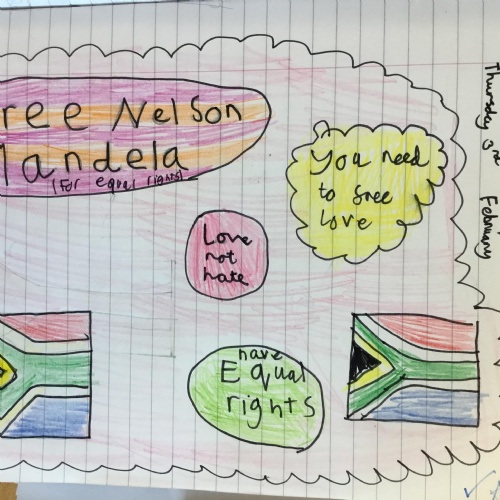 ree Nelson
Mandela
(For equal rights)
You need
to free
love
Love
not
hate
have
Equal
rights
Thursday 3rd February